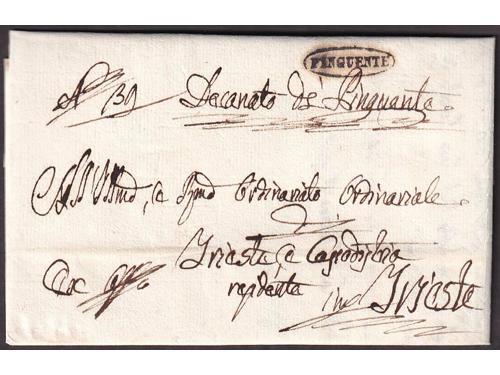 PINGUENTE
N 139 Decanato di Pinguente
Ordinariato Ordinariale
Trieste e Capodistria
residente in Trieste